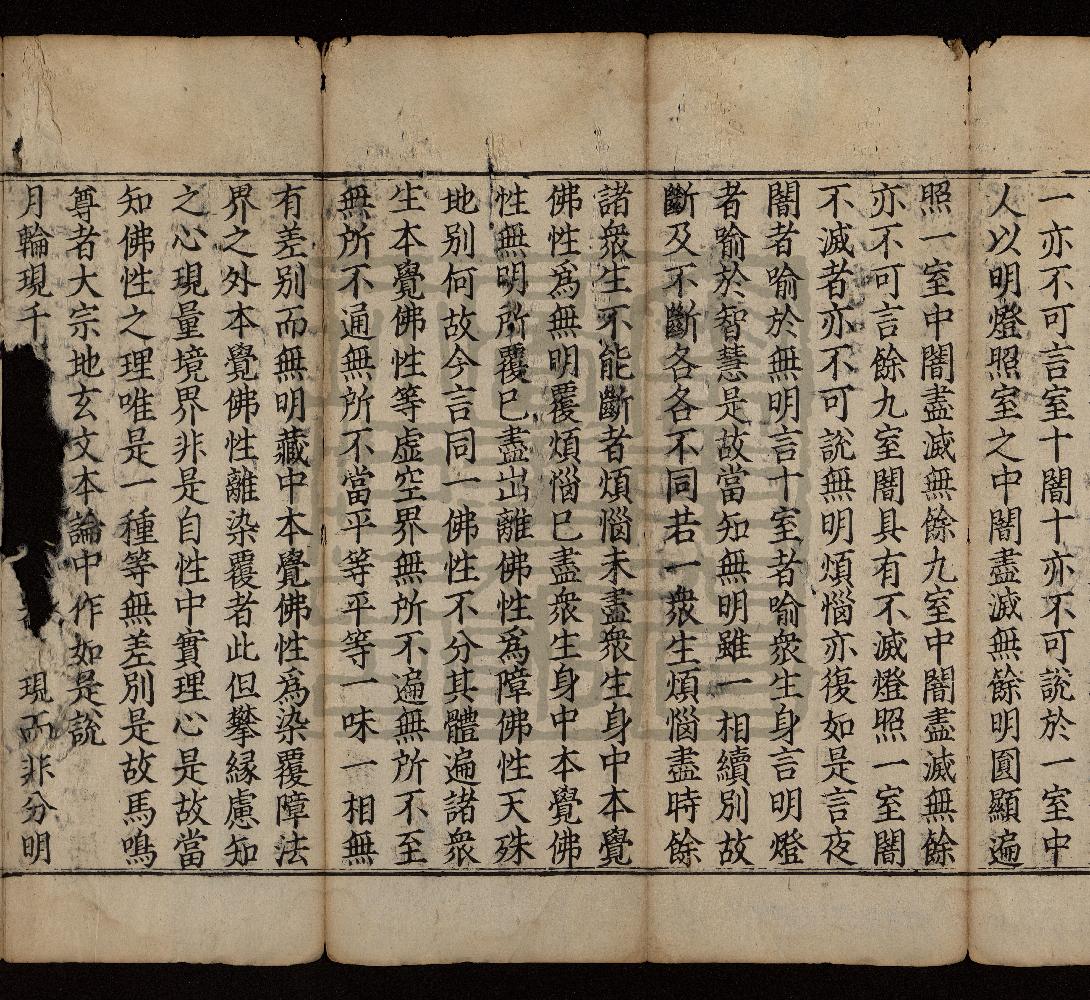 一亦不可言室十闇十亦不可說於一室中
人以明燈照室之中闇盡滅無餘明圓顯遍
照一室中闇盡滅無餘九室中闇盡滅無餘
亦不可言餘九室闇具有不滅燈照一室闇
不滅者亦不可說無明煩惱亦復如是言夜
闇者喻於無明言十室者喻衆生身言明燈
者喻於智慧是故當知無明雖一相續別故
斷及不斷各各不同若一衆生煩惱盡時餘
諸衆生不能斷者煩惱未盡衆生身中本覺
佛性爲無明覆煩惱已盡衆生身中本覺佛
性無明所覆已盡出離佛性爲障佛性天殊
地别何故今言同一佛性不分其體遍諸衆
生本覺佛性等虛空界無所不遍無所不至
無所不通無所不當平等平等一味一相無
有差别而無明藏中本覺佛性爲染覆障法
界之外本覺佛性離染覆者此但攀緣慮知
之心現量境界非是自性中實理心是故當
知佛性之理唯是一種等無差別是故馬鳴
尊者大宗地玄文本論中作如是說
月輪現千現而非分明